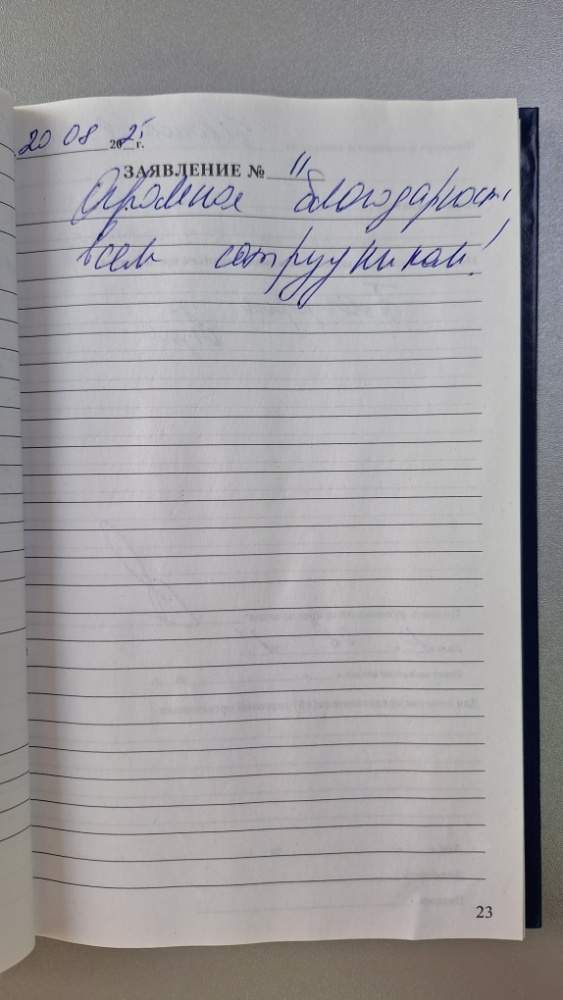 20 08 2025 г.
ЗАЯВЛЕНИЕ № 11
Огромная благодарность
всем сотрудникам!
23